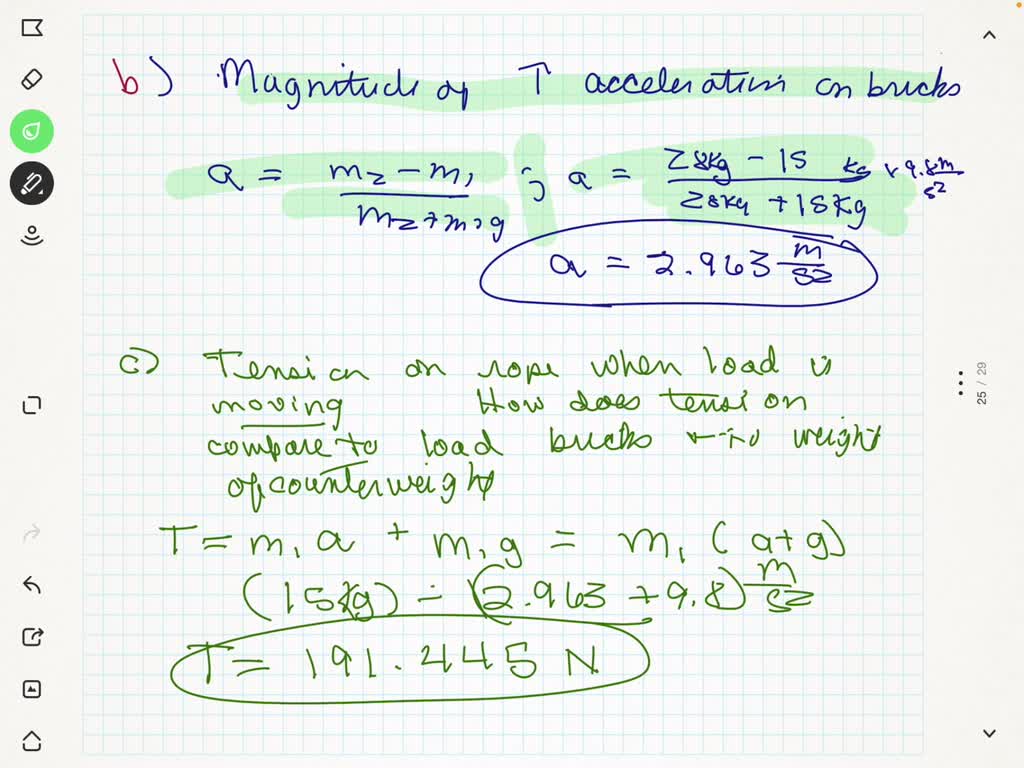 b) Magnitude of ↑ acceleration on bricks
a = m2 - m1 / m2 + m1 g ; a = 28kg - 15 kg / 28kg + 15kg × 9.8 m/s2
a = 2.963 m/s2
c) Tension on rope when load is
moving How does tension
compare to load bricks weight
of counterweight
T = m1a + m1g = m1(a+g)
(15kg) - (2.963 + 9.8) m/s2
T = 191.445 N
25 / 29